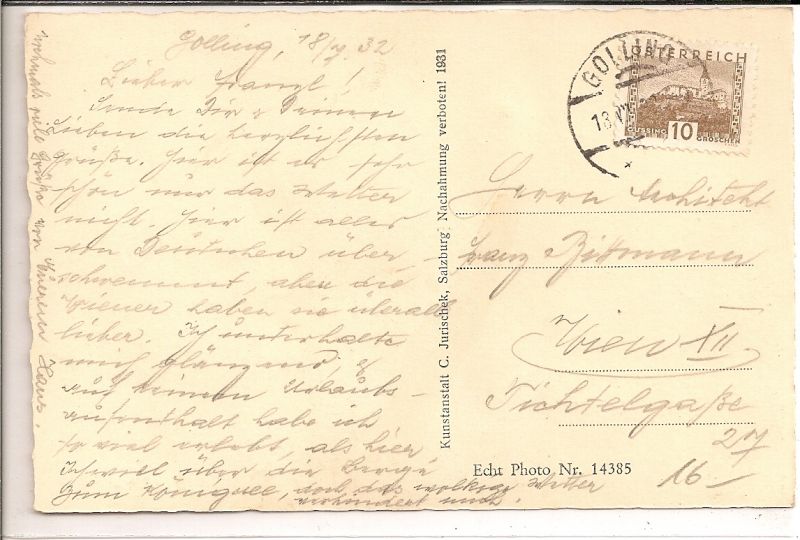 Golling, 18/VII. 32
Lieber Franzl!
Sende Dir & Deinen
Lieben die herzlichsten
Grüße. Hier ist es sehr
schön nur das Wetter
nicht. Hier ist alles
von Deutschen über-
schwemmt, aber die
Wiener haben sie überall
lieber. Ich unterhalte
mich glänzend,
auf keinem Urlaubs-
aufenthalt habe ich
so viel erlebt, als hier
Ich will über die Berge
zum Königsee, doch das wolkige Wetter
verhindert mich.
nochmals viele Grüße von Hans.
Kunstanstalt C. Jurischek, Salzburg. Nachahmung verboten! 1931
GOLLING
18.VII
ÖSTERREICH
GÜSSING 10 GROSCHEN
Herrn Architekt
Franz Bittmann
Wien XII
Tichtelgaße
27
16-
Echt Photo Nr. 14385